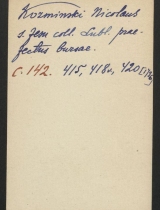 Kozminski Nicolaus
s. Jem coll. Lubl. prae-
fectus bursae.
C. 142. 415, 418v, 420